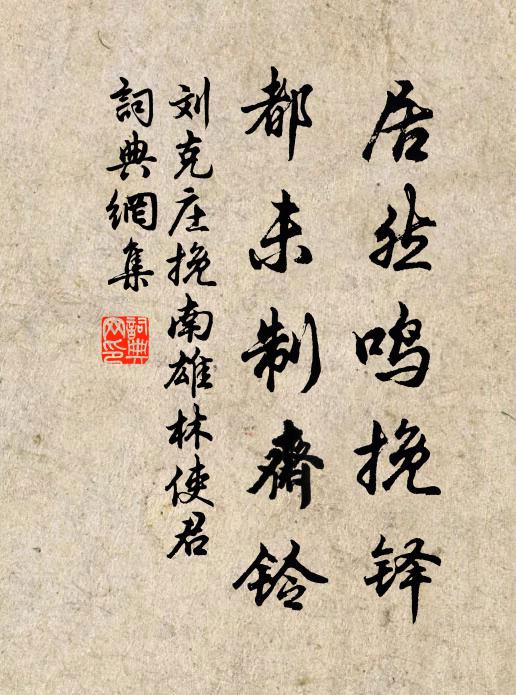 居然鸣挽铎
都未制斋铃
刘克庄挽南雄林使君
詞典網集
詞典網印